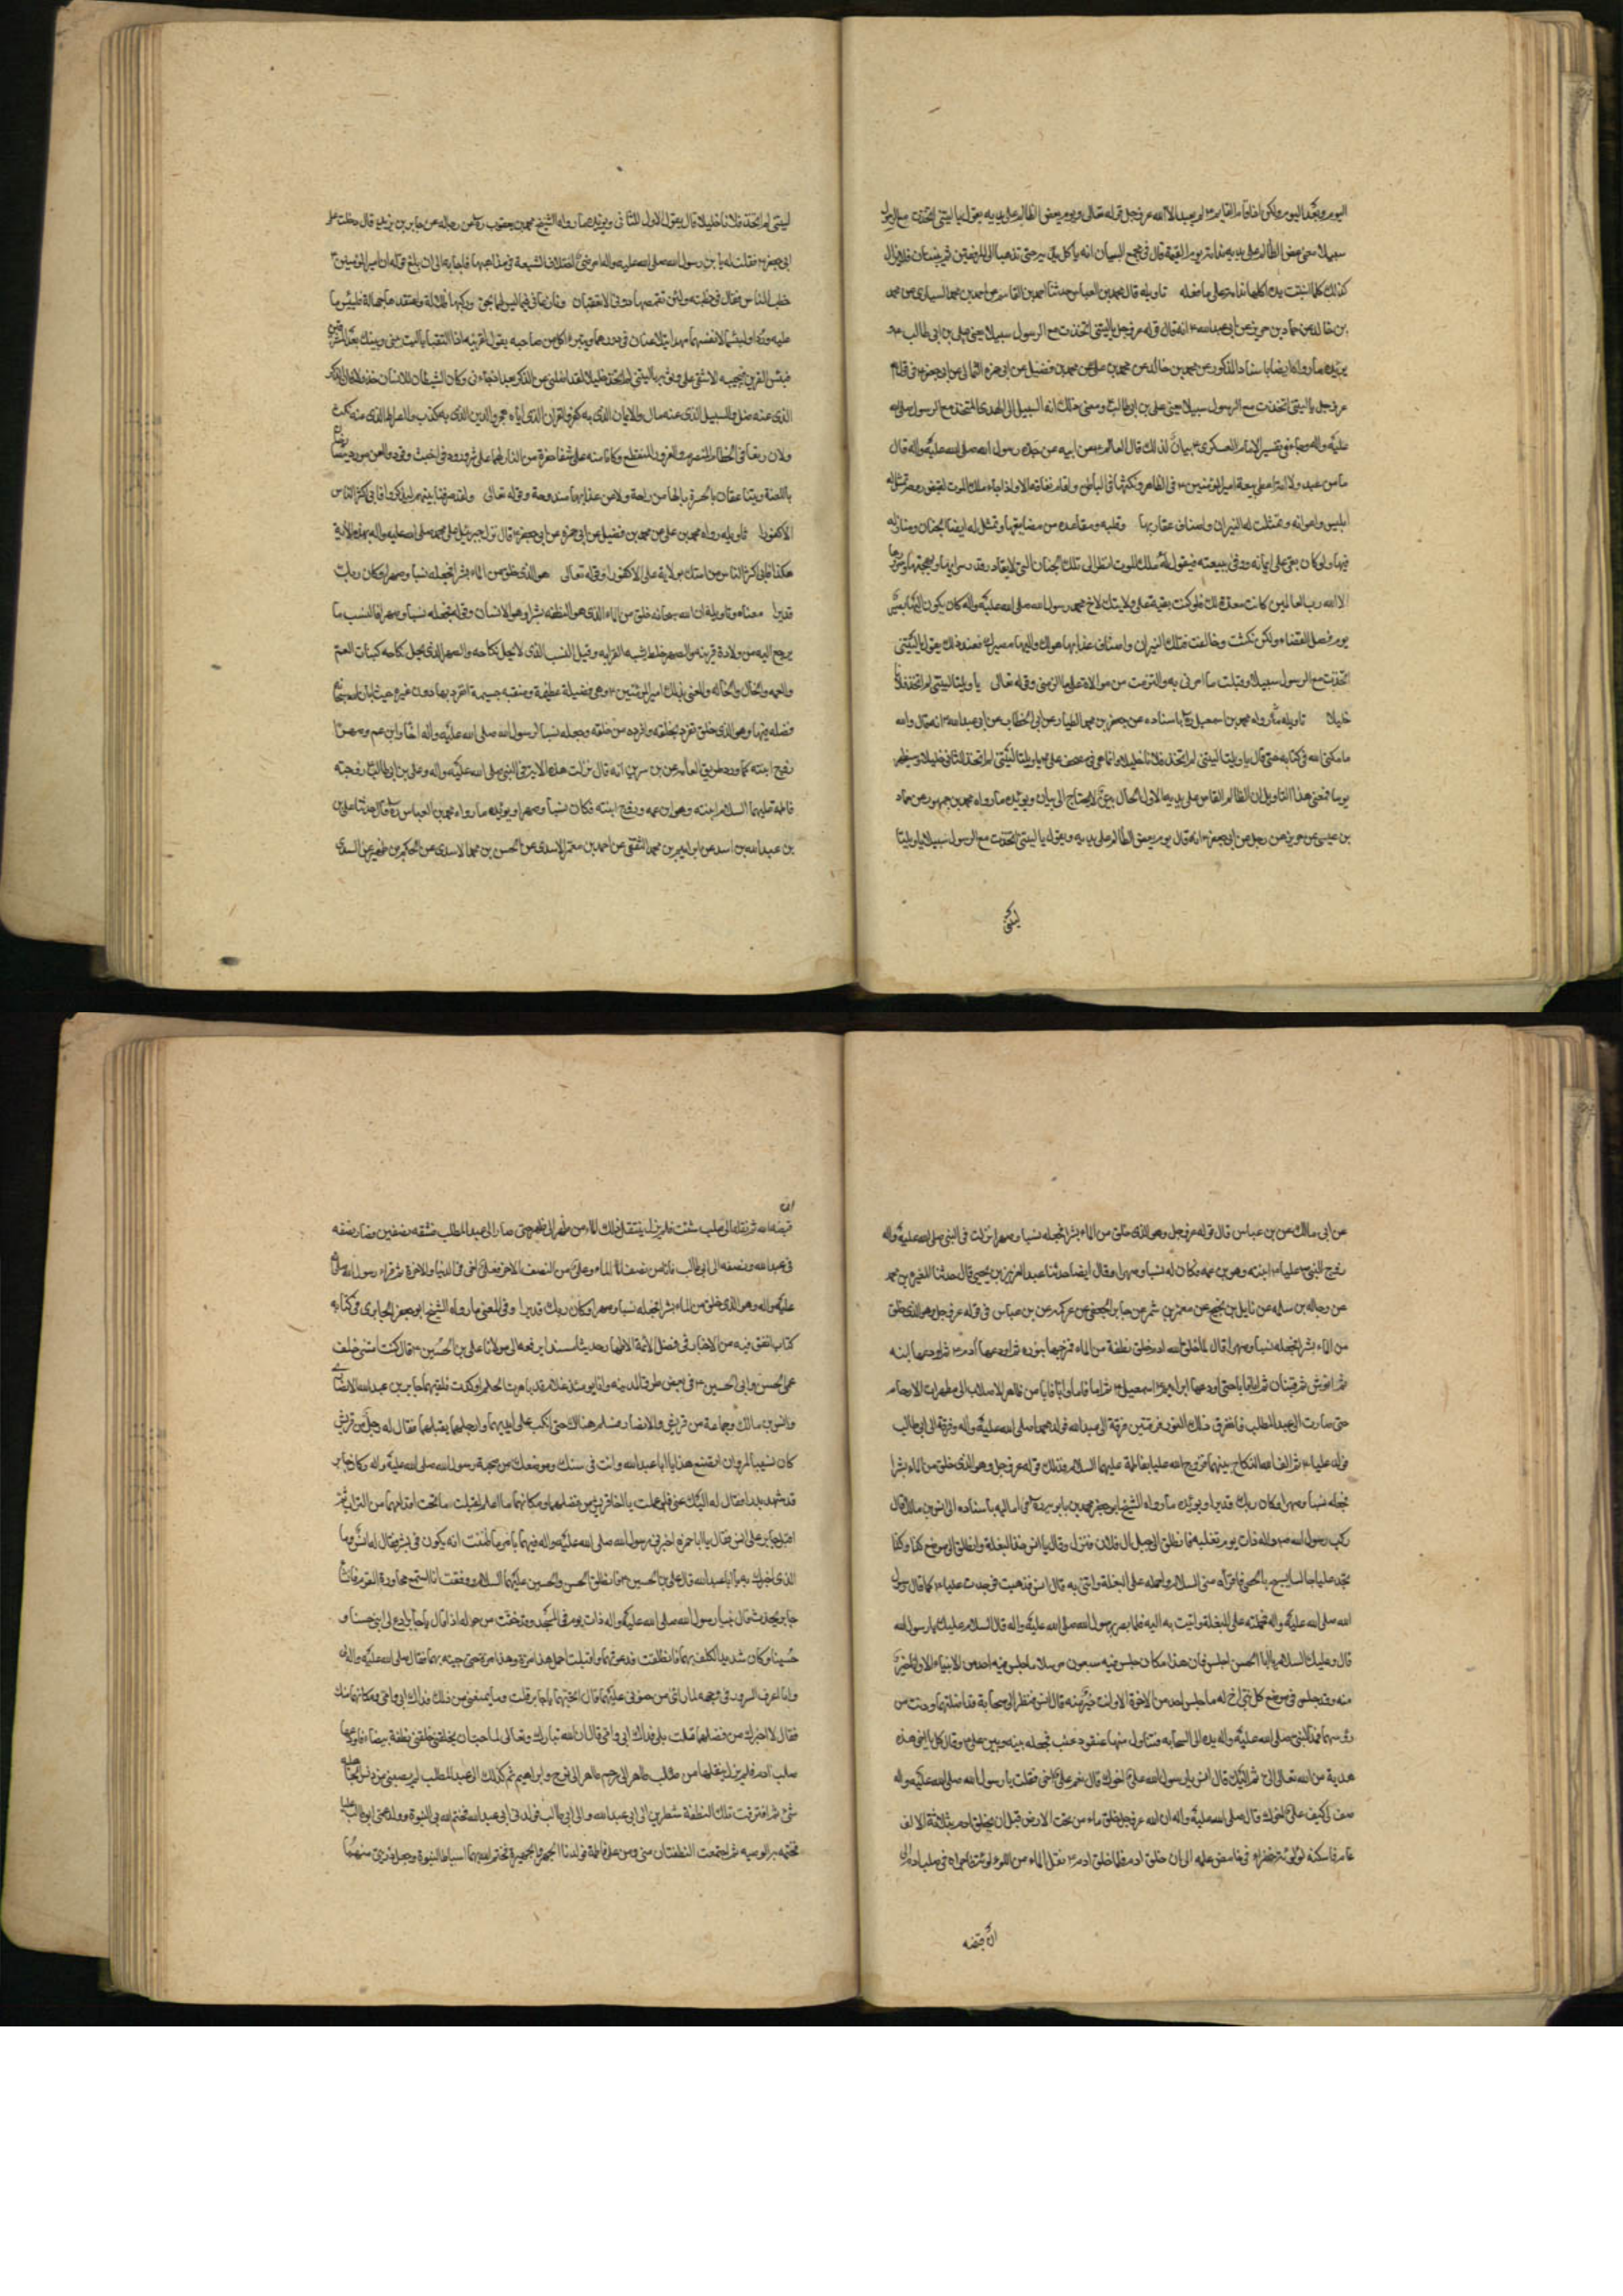 سبيلا معنى يعض الظالم على يديه ندامة يوم القيمة قال في مجمع البيان انه ياكل يديه حتى تذهبا الى المرفقين ثم ينبتان فلا يزال
كذلك كلما نبتت يده اكلها ندامة على ما فعله تاويله قال محمد بن العباس حدثنا احمد بن القاسم عن احمد بن محمد السياري عن محمد
بن خالد عن حماد بن حريز عن ابي عبد الله ع انه قال قوله عز وجل يا ليتني اتخذت مع الرسول سبيلا يعني علي بن ابي طالب
يؤيده ما رواه ايضا باسناد المذكور عن محمد بن خالد عن محمد بن علي عن محمد بن فضيل عن ابي حمزة الثمالي عن ابي جعفر ع في قوله
عز وجل يا ليتني اتخذت مع الرسول سبيلا يعني علي بن ابي طالب ومعنى ذلك انه السبيل الى الهدى المتخذ مع الرسول صلى الله
عليه واله وجاء في تفسير الامام العسكري ع بيان لذلك قال العالم ع عن ابيه عن جده رسول الله صلى الله عليه واله قال
ما من عبد ولا امة اعطى بيعة امير المؤمنين ع في الظاهر ونكثها في الباطن واقام على نفاقه الا واذا جاءه ملك الموت لقبض روحه تمثل له
ابليس واعوانه وتمثلت له النيران واصناف عقاربها وقلبه ومقاعده من مضايقها وتمثل له ايضا الجنان ومنازله
فيها لو كان بقي على ايمانه ووفى ببيعته فيقول له ملك الموت انظر الى تلك الجنان التي لا يقادر قدر سرايها وبهجتها وسرورها
الا الله رب العالمين كانت معدة لك فلو كنت بقيت على ولايتك لاخي محمد رسول الله صلى الله عليه واله كان يكون اليها
يوم فصل القضاء ولكن نكثت وخالفت فتلك النيران واصناف عذابها هوالك واليها مصيرك فعند ذلك يقول يا ليتني
اتخذت مع الرسول سبيلا وقبلت ما امرني به والتزمت من موالاة علي ما الزمني وقوله تعالى يا ويلتا ليتني لم اتخذ فلانا
خليلا تاويله ما رواه محمد بن اسمعيل باسناده عن جعفر بن محمد الطيار عن ابي الخطاب عن ابي عبد الله ع انه قال والله
ما كنى الله في كتابه حتى قال يا ويلتا ليتني لم اتخذ فلانا خليلا وانما هي في مصحف علي ع يا ويلتا ليتني لم اتخذ الثاني خليلا وسيظهر
يوما فمعنى هذا التاويل ان الظالم العاض على يديه الاول والحال بين لا يحتاج الى بيان ويؤيده ما رواه محمد بن جمهور عن حماد
بن عيسى عن حريز عن رجل عن ابي جعفر ع انه قال يوم يعض الظالم على يديه ويقول يا ليتني اتخذت مع الرسول سبيلا يا ويلتا
ليتني
ليتني لم اتخذ فلانا خليلا قال يقول الاول للثاني ويؤيده ما رواه الشيخ محمد بن يعقوب عن رجاله عن جابر بن يزيد قال دخلت على
ابي جعفر ع فقلت له يا بن رسول الله صلى الله عليه واله امرضني اختلاف الشيعة في مذاهبها فاجابه الى ان بلغ قوله ان امير المؤمنين ع
خطب الناس فقال في خطبته ولئن تقمصها دوني الاشقيان ونازعاني فيما ليس لهما بحق وركباها ضلالة واعتقداها جهالة فلبئس ما
عليه وردا ولبئس ما لانفسهما مهدا يتلاعنان في دورهما ويتبرء كل من صاحبه يقول لقرينه اذا التقيا يا ليت بيني وبينك بعد المشرقين
فبئس القرين فيجيبه الاشقى على وثوبه يا ليتني لم اتخذك خليلا لقد اضللتني عن الذكر بعد اذ جاءني وكان الشيطان للانسان خذولا فانا الذكر
الذي عنه ضل والسبيل الذي عنه مال والايمان الذي به كفر والقران الذي اياه هجر والدين الذي به كذب والصراط الذي عنه نكث
باللعنة ويتناعقان بالحسرة ما لهما من راحة ولا عن عذابهما مندوحة وقوله تعالى ولقد صرفناه بينهم ليذكروا فابى اكثر الناس
الا كفورا تاويله رواه محمد بن علي عن محمد بن فضيل عن ابي حمزة عن ابي جعفر ع قال نزل جبرئيل على محمد صلى الله عليه واله بهذه الاية
هكذا فابى اكثر الناس من امتك بولاية علي الا كفورا وقوله تعالى هو الذي خلق من الماء بشرا فجعله نسبا وصهرا وكان ربك
قديرا معناه وتاويله ان الله سبحانه خلق من الماء الذي هو النطفة بشرا وهو الانسان وقوله فجعله نسبا وصهرا فالنسب ما
يرجع اليه من ولادة قريبة والصهر خلط يشبه القرابة وقيل النسب الذي لا يحل نكاحه والصهر الذي يحل نكاحه كبنات العم
والعمه والخال والخاله والمعنى بذلك امير المؤمنين ع وهي فضيلة عظيمة ومنقبة جسيمة انفرد بها دون غيره حيث ابان الله سبحانه
فضله فيها وهو الذي خلق تفرد بخلقته وافرده من خلقه وجعله نسبا لرسول الله صلى الله عليه واله اخا وابن عم وصهرا
زوج ابنته كما ورد من طريق العامه عن بن سرين انه قال نزلت هذه الاية في النبي صلى الله عليه واله وعلي بن ابي طالب زوجته
فاطمة عليها السلام ابنته وهو ابن عمه وزوج ابنته فكان نسبا وصهرا ويؤيده ما رواه محمد بن العباس قال حدثنا علي بن
بن عبد الله بن اسد عن ابراهيم بن محمد الثقفي عن احمد بن معمر الاسدي عن الحسن بن محمد الاسدي عن الحكم بن ظهير عن السدي
عن ابي مالك عن بن عباس قال قوله عز وجل وهو الذي خلق من الماء بشرا فجعله نسبا وصهرا نزلت في النبي صلى الله عليه واله
زوج النبي ع عليا ع ابنته وهو بن عمه فكان له نسبا وصهرا وقال ايضا حدثنا عبد العزيز بن يحيى قال حدثنا المغيرة بن محمد
عن رجا بن سلمه عن نايل بن نجيح عن معمر بن شمر عن جابر الجعفي عن عكرمه عن بن عباس في قوله عز وجل وهو الذي خلق
من الماء بشرا فجعله نسبا وصهرا قال لما خلق الله ادم خلق نطفة من الماء فمزجها بنوره ثم اودعها ادم ع ثم اودعها ابنه
ثم انوش ثم قينان ثم ابا فابا حتى اودعها ابراهيم ع اسمعيل ع ثم اما فاما وابا فابا من طاهر الاصلاب الى مطهرات الارحام
حتى صارت الى عبد المطلب فانفرق ذلك النور فرقتين فرقة الى عبد الله فولد محمدا صلى الله عليه واله وفرقة الى ابي طالب
فولد عليا ع ثم الف الله النكاح بينهما فزوج الله عليا بفاطمة عليهما السلام فذلك قوله عز وجل وهو الذي خلق من الماء بشرا
فجعله نسبا وصهرا وكان ربك قديرا ويؤيده ما رواه الشيخ ابو جعفر محمد بن بابويه في اماليه باسناده الى انس بن مالك قال
ركب رسول الله ص ذات يوم بغلته فانطلق الى جبل ال فلان فنزل وقال يا انس خذ البغلة وانطلق الى موضع كذا وكذا
تجد عليا جالسا يسبح بالحصى فاقراه مني السلام واحمله على البغلة وائتني به قال انس فذهبت فوجدت عليا ع كما قال رسول
الله صلى الله عليه واله فحملته على البغلة واتيت به اليه فلما بصر برسول الله صلى الله عليه واله قال السلام عليك يا رسول الله
قال وعليك السلام يا ابا الحسن اجلس فان هذا مكان جلس فيه سبعون مرسلا ما جلس فيه احد من الانبياء الا وانا خير
منه وقد جلس في موضع كل نبي اخ له ما جلس احد من الاخوة الا وانت خير منه قال انس فنظر الى سحابة قد اظلتهما ودنت من
رؤسهما فمد النبي صلى الله عليه واله يده الى السحابه فتناول منها عنقود عنب فجعله بينه وبين علي ع وقال كل يا اخي هذه
هدية من الله تعالى الي ثم اليك قال انس يا رسول الله علي اخوك قال نعم علي اخي فقلت يا رسول الله
صف لي كيف علي اخوك قال صلى الله عليه واله ان الله عز وجل خلق ماء من تحت الارض قبل ان يخلق ادم بثلاثة الاف
عام فاسكنه لؤلؤة خضراء في غامض علمه الى ان خلق ادم فلما خلق ادم ع نقل الماء من اللؤلؤة فاجراه في صلب ادم الى
ان قبضه
ان
قبضه الله ثم نقله الى صلب شئت فلم يزل ينتقل ذلك الماء من ظهر الى ظهر حتى صار الى عبد المطلب فشقه نصفين فصار نصفه
في عبد الله ونصفه الى ابي طالب فانا من نصف الماء وعلي من النصف الاخر فعلي اخي في الدنيا والاخرة ثم قراء رسول الله صلى الله
عليه واله وهو الذي خلق من الماء بشرا فجعله نسبا وصهرا وكان ربك قديرا وفي المعنى ما رواه الشيخ ابو جعفر الحايري في كتابه
كتاب اتفق فيه من الاخبار في فضل الائمة الاطهار حديثا مسندا يرفعه الى مولانا علي بن الحسين ع قال كنت امشي خلف
عمي الحسن وابي الحسين ع في بعض طرق المدينه وانا يومئذ غلام قد ناهزت الحلم او كدت فلقيهما جابر بن عبد الله الانصاري
وانس بن مالك وجماعة من قريش والانصار فسلم هنالك حتى انكب على ايديهما وارجلهما يقبلهما فقال له رجل من قريش
كان نسيبا لمروان اتصنع هذا يا ابا عبد الله وانت في سنك وموضعك من صحبة رسول الله صلى الله عليه واله وكان جابر
قد شهد بدرا فقال له اليك عني فلو علمت يا اخا قريش من فضلهما ومكانهما ما اعلم لقبلت ما تحت اقدامهما من التراب ثم
اقبل جابر على انس فقال يا ابا حمزه اخبرني رسول الله صلى الله عليه واله فيهما بامر ما ظننت انه يكون في بشر فقال له انس وما
الذي اخبرك به يا ابا عبد الله قال علي بن الحسين ع فانطلق الحسن والحسين عليهما السلام ووقفت انا اسمع محاورة القوم فانشأ
جابر يحدث قال بينا رسول الله صلى الله عليه واله ذات يوم في المسجد وقد خف من حوله اذ قال يا جابر ادع لي ابني حسنا و
حسينا وكان شديد الكلف بهما فانطلقت فدعوتهما واقبلت احمل هذا مرة وهذا مرة حتى جئته بهما فقال صلى الله عليه واله لي
وانا اعرف السرور في وجهه لما راى من حنوي عليهما قال اتحبهما يا جابر قلت وما يمنعني من ذلك فداك ابي وامي ومكانهما منك
فقال الا اخبرك عن فضلهما قلت بلى فداك ابي وامي قال ان الله تبارك وتعالى لما احب ان يخلقني خلقني نطفة بيضاء فاودعها
صلب ادم فلم يزل ينقلها من صلب طاهر الى رحم طاهر الى نوح وابراهيم ثم كذلك الى عبد المطلب لم يصبني من دنس الجاهليه
شئ ثم افترقت تلك النطفة شطرين الى ابي عبد الله والى ابي طالب فولدني ابي عبد الله فختم الله بي النبوة وولد عمي ابو طالب عليا
فختمت به الوصيه ثم اجتمعت النطفتان مني ومن علي وفاطمة فولدنا الجهر والجهير فختم الله بهما اسباط النبوة وجعل ذريتي منهما